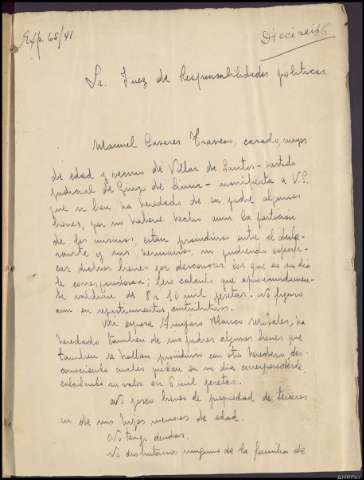 Exp. 65/41
Sr. Juez de Responsabilidades políticas
Manuel Casares Traveso, casado, mayor
de edad y vecino de Villar de Santos - partido
judicial de Ginzo de Limia - manifiesta a V.S.
que si bien ha heredado de su padre algunos
bienes, por no haberse hecho aun la particion
de los mismos, estan proindiviso entre el decla-
rante y sus hermanos, no pudiendo especifi-
car dichos bienes por desconocer los que en su dia
le corresponderan; pero calcula que aproximadamen-
te valdrían de 8 a 10 mil pesetas. No figura
aun en repartimientos contributivos.
Mi esposa Amparo Blanco, ha
heredado tambien de sus padres algunos bienes que
tambien se hallan proindiviso con otros herederos, des-
conociendo cuales puedan en su dia corresponderle
calculando su valor en 6 mil pesetas.
No poseo bienes de propiedad de terceros
ni de mis hijos menores de edad.
No tengo deudas.
No disfrutamos ninguno de la familia de